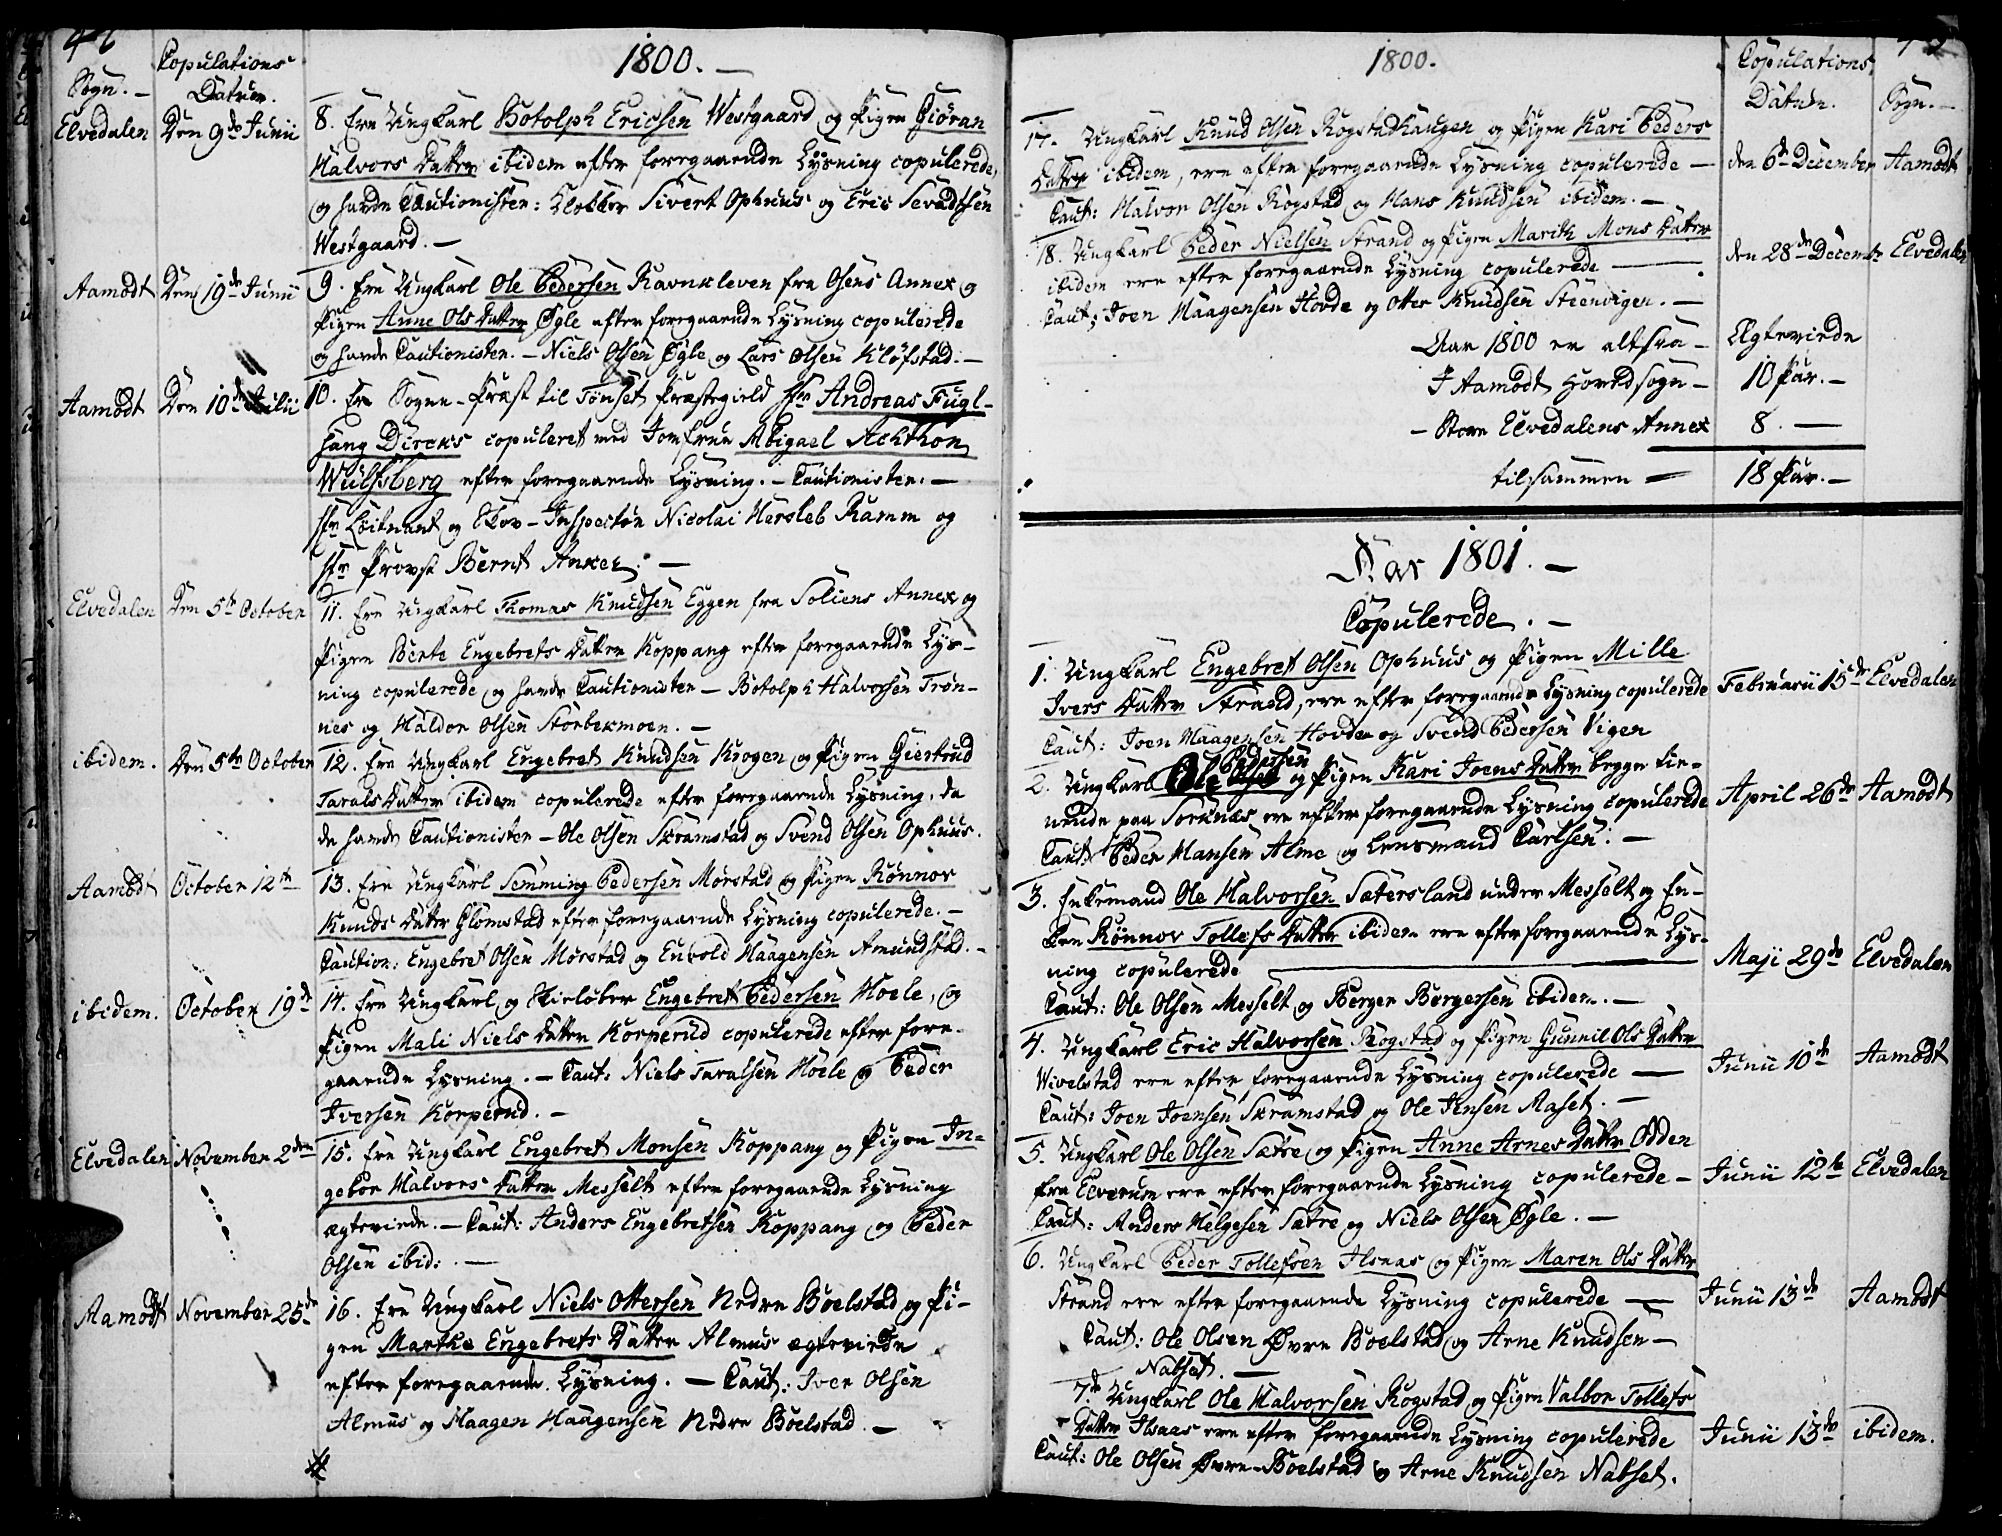 Copulations
Sogn. — Datum.
1800. —
Elvedalen Den 9de Junii 8. Ere Ungkarl Botolph Ericsen Westgaard og Pigen Giøran
Halvors Datter ibidem efter foregaaende Lysning copulerede,
og havde Cautionister: Klokker Sivert Ophuus og Eric Sevaldsen
Westgaard. —
Aamodt Den 19de Junii 9. Ere Ungkarl Ole Pedersen Ravnkleven fra Osens Annex og
Pigen Anne Ols Datter Øgle efter foregaaende Lysning copulerede
og havde Cautionister. — Niels Olsen Øgle og Lars Olsen Kløfstad. —
Aamodt Den 10de Julii 10. Er Sogne-Præst til Tønset Præstegield Hr Andreas Fugl-
hang Dircks copuleret med Jomfrue Abigael Achthon
Wulfsberg efter foregaaende Lysning. — Cautionister. —
Hr Leitnant og Skov-Inspectør Nicolai Hersleb Ramm og
Hr Provst Bernt Anker. —
Elvedalen Den 5te October 11. Ere Ungkarl Thomas Knudsen Eggen fra Soliens Annex og
Pigen Berte Engebrets Datter Koppang efter foregaaende Lys-
ning copulerede og havde Cautionister — Botolph Halvorsen Trøn-
nes og Haldor Olsen Storbekmoen. —
ibidem. Den 5te October 12. Ere Ungkarl Engebret Knudsen Krogen og Pigen Giertrud
Tarals Datter ibidem copulerede efter foregaaende Lysning, da
de havde Cautionister — Ole Olsen Skramstad og Svend Olsen Ophuus.
Aamodt October 12te 13. Ere Ungkarl Semming Pedersen Mørstad og Pigen Rønnov
Knuds Datter Glomstad efter foregaaende Lysning copulerede. —
Caution: Engebret Olsen Mørstad og Envold Haagensen Amundstad. —
ibidem. October 19de 14. Ere Ungkarl og Skieløber Engebret Pedersen Hoele, og
Pigen Mali Niels Datter Korperud copulerede efter fore-
gaaende Lysning. — Caut: Niels Taralsen Hoele og Peder
Iversen Korperud. —
Elvedalen November 2den 15. Ere Ungkarl Engebret Monsen Koppang og Pigen In-
gebor Halvors Datter Messelt efter foregaaende Lysning
ægteviede. — Caut: Anders Engebretsen Koppang og Peder
Olsen ibid: —
Aamodt November 25de 16. Ere Ungkarl Niels Ottersen Nedre Bøelstad og Pi-
gen Marthe Engebrets Datter Almus ægteviede
efter foregaaende Lysning. — Caut: Iver Olsen
Almus og Haagen Haagensen Nedre Bøelstad. —
1800.
Copulations
Datum. Sogn. —
17. Ungkarl Knud Olsen Rogstadhaugen og Pigen Kari Peders
Datter ibidem, ere efter foregaaende Lysning copulerede — den 6te December Aamodt
Caut: Halvor Olsen Rogstad og Hans Knudsen ibidem. —
18. Ungkarl Peder Nielsen Strand og Pigen Marith Mons Datter
ibidem ere efter foregaaende Lysning copulerede — den 28de Decembr Elvedalen
Caut: Joen Haagensen Hovde og Otter Knudsen Steenvigen. —
Aar 1800 er altsaa — Ægteviede
I Aamodt Hovedsogn — 10 Par. —
— Store Elvedalens Annex 8. —
tilsammen = 18 Par. —
Aar 1801. —
Copulerede. —
1. Ungkarl Engebret Olsen Ophuus og Pigen Mille
Ivers Datter Strand, ere efter foregaaende Lysning copulerede Februarii 15de Elvedalen
Caut: Joen Haagensen Hovde og Svend Pedersen Vigen
Pedersen
2. Ungkarl Ole Olsen og Pigen Kari Joens Datter begge tie-
nende paa Sorknæs ere efter foregaaende Lysning copulerede April 26de Aamodt
Caut: Peder Hansen Alme og Lensmand Carlsen. —
3. Enkemand Ole Halvorsen Sætersland under Messelt og En-
ken Rønnov Tollefs Datter ibidem ere efter foregaaende Lys-
ning copulerede — Maji 29de Elvedalen
Caut: Ole Olsen Messelt og Berger Bergersen ibidem. —
4. Ungkarl Eric Halvorsen Rogstad og Pigen Gunnil Ols Datter
Wivelstad ere efter foregaaende Lysning copulerede — Junii 10de Aamodt
Caut: Joen Joensen Skramstad og Ole Jensen Aaset. —
5. Ungkarl Ole Olsen Sætre og Pigen Anne Arnes Datter Odden
fra Elverum ere efter foregaaende Lysning copulerede — Junii 12te Elvedalen
Caut: Anders Helgesen Sætre og Niels Olsen Øgle. —
6. Ungkarl Peder Tollefsen Ilsaas og Pigen Maren Ols Datter
Strand ere efter foregaaende Lysning copulerede — Junii 13de Aamodt
Caut: Ole Olsen Øvre Boelstad og Arne Knudsen —
Nabset. —
7de Ungkarl Ole Halvorsen Rogstad og Pigen Valbor Tollefs
Datter Ilsaas ere efter foregaaende Lysning copulerede Junii 13de ibidem.
Caut: Ole Olsen Øvre-Boelstad og Arne Knudsen Nabset.